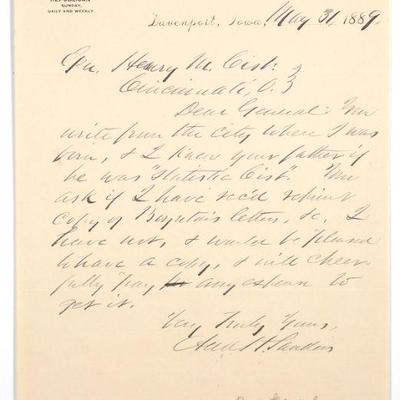 SUNDAY,
DAILY AND WEEKLY.
Davenport, Iowa, May 31, 1889.
Gen. Henry M. Cist:
Cincinnati, O. }
Dear General: You
write from the city where I was
born, & I knew your father if
he was "Statistic Cist". You
ask if I have rec'd reprint
copy of Boynton's letters, &c. I
have not, & would be pleased
to have a copy, & will cheer-
fully pay any expense to
get it.
Very Truly Yours,
Add. H. Sanders